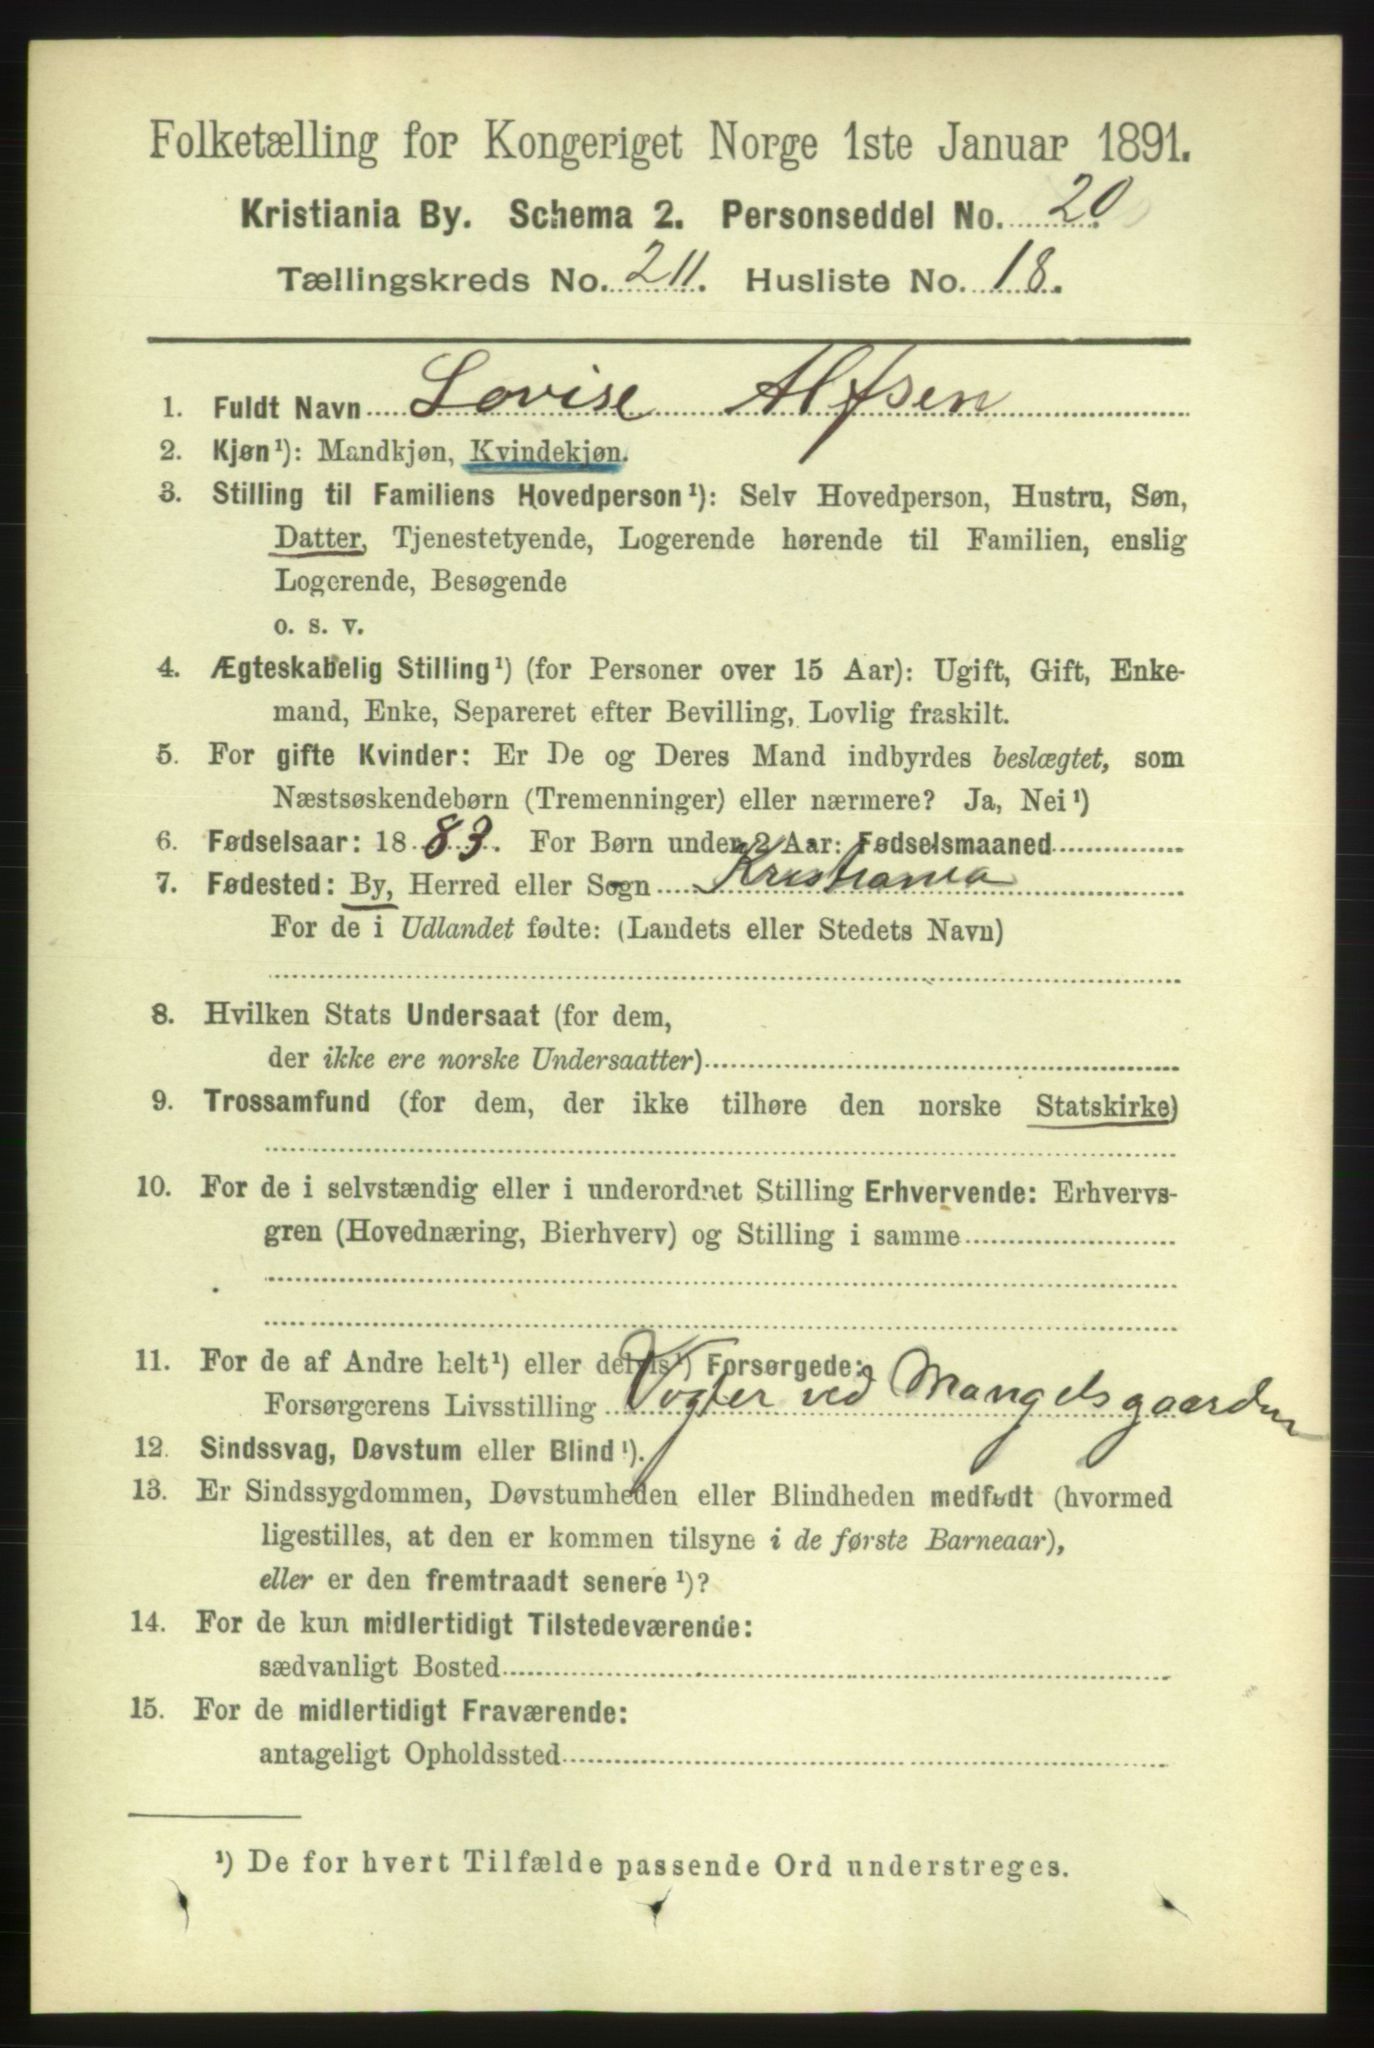 Folketælling for Kongeriget Norge 1ste Januar 1891.
Kristiania By. Schema 2. Personseddel No. 20
Tællingskreds No. 211. Husliste No. 18.
1. Fuldt Navn Lovise Alfsen
2. Kjøn¹): Mandkjøn, Kvindekjøn.
3. Stilling til Familiens Hovedperson¹): Selv Hovedperson, Hustru, Søn,
Datter, Tjenestetyende, Logerende hørende til Familien, enslig
Logerende, Besøgende
o. s. v.
4. Ægteskabelig Stilling¹) (for Personer over 15 Aar): Ugift, Gift, Enke-
mand, Enke, Separeret efter Bevilling, Lovlig fraskilt.
5. For gifte Kvinder: Er De og Deres Mand indbyrdes beslægtet, som
Næstsøskendebørn (Tremenninger) eller nærmere? Ja, Nei¹)
6. Fødselsaar: 1883. For Børn under 2 Aar: Fødselsmaaned
7. Fødested: By, Herred eller Sogn Kristiania
For de i Udlandet fødte: (Landets eller Stedets Navn)
8. Hvilken Stats Undersaat (for dem,
der ikke ere norske Undersaatter)
9. Trossamfund (for dem, der ikke tilhøre den norske Statskirke)
10. For de i selvstændig eller i underordnet Stilling Erhvervende: Erhvervs-
gren (Hovednæring, Bierhverv) og Stilling i samme
11. For de af Andre helt¹) eller delvis¹) Forsørgede:
Forsørgerens Livsstilling Vogter ved Mangelsgaarden
12. Sindssvag, Døvstum eller Blind¹).
13. Er Sindssygdommen, Døvstumheden eller Blindheden medfødt (hvormed
ligestilles, at den er kommen tilsyne i de første Barneaar),
eller er den fremtraadt senere¹)?
14. For de kun midlertidigt Tilstedeværende:
sædvanligt Bosted
15. For de midlertidigt Fraværende:
antageligt Opholdssted
¹) De for hvert Tilfælde passende Ord understreges.